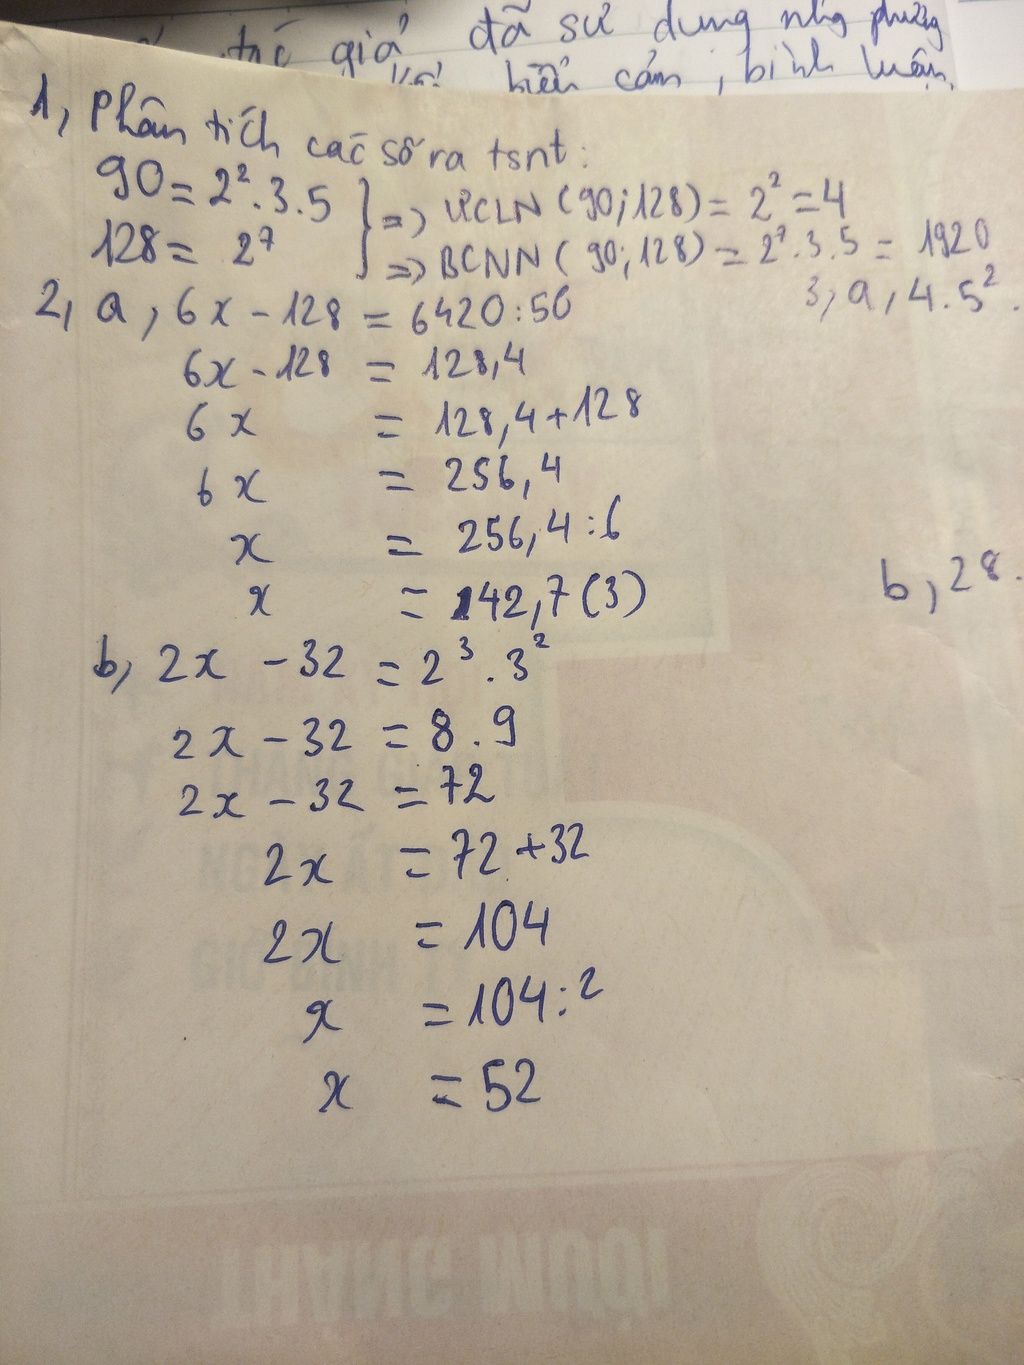 giả đã sử dụng
cảm, bình luận.
1, Phân tích các số ra tsnt:
90 = 2².3.5
128 = 2⁷
=> ƯCLN (90;128) = 2² = 4
=> BCNN ( 90;128) = 2⁷.3.5 = 1920
2, a, 6x - 128 = 6420:50
6x - 128 = 128,4
6x = 128,4+128
6x = 256,4
x = 256,4:6
x = 142,7(3)
b, 2x - 32 = 2³.3²
2x - 32 = 8.9
2x - 32 = 72
2x = 72+32
2x = 104
x = 104:2
x = 52
3, a, 4.5².
b, 28.